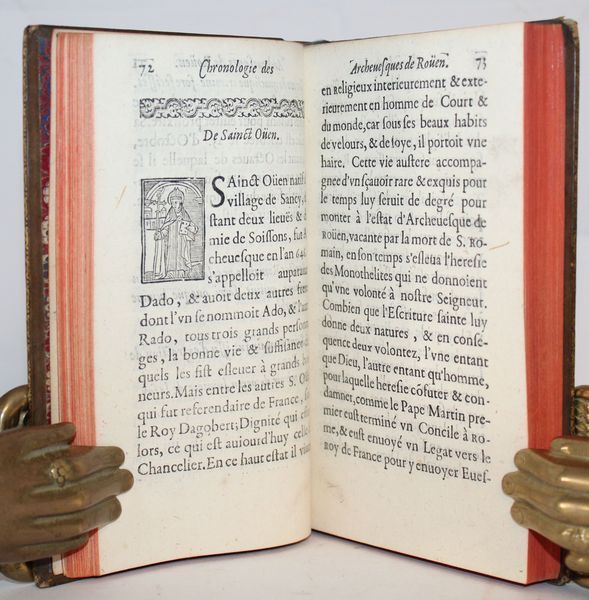 72 Chronologie des
De Sainct Oüen.
SAinct Oüen natif
village de Sancy,
stant deux lieuës & d
mie de Soissons, fut A
cheuesque en l'an 646
s'appelloit auparau
Dado, & auoit deux autres frer
dont l'vn se nommoit Ado, & l'au
Rado, tous trois grands person
ges, la bonne vie & suffisance
quels les fist esleuer à grands
neurs. Mais entre les autres S. Oü
qui fut referendaire de France,
le Roy Dagobert; Dignité qui
lors, ce qui est aujourd'huy celle
Chancelier. En ce haut estat il viu
Archeuesques de Roüen. 73
en Religieux interieurement & exte-
rieurement en homme de Court &
du monde, car sous ses beaux habits
de velours, & de soye, il portoit vne
haire. Cette vie austere accompa-
gnee d'vn sçauoir rare & exquis pour
le temps luy seruit de degré pour
monter à l'estat d'Archeuesque de
Roüen, vacante par la mort de S. Ro-
main, en son temps s'esleua l'heresie
des Monothelites qui ne donnoient
qu'vne volonté à nostre Seigneur.
Combien que l'Escriture sainte luy
donne deux natures, & en consé-
quence deux volontez, l'vne entant
que Dieu, l'autre entant qu'homme,
pour laquelle heresie cõfuter & con-
damner, comme le Pape Martin pre-
mier eust terminé vn Concile à Ro-
me, & eust enuoyé vn Legat vers le
Roy de France pour y enuoyer Eues-